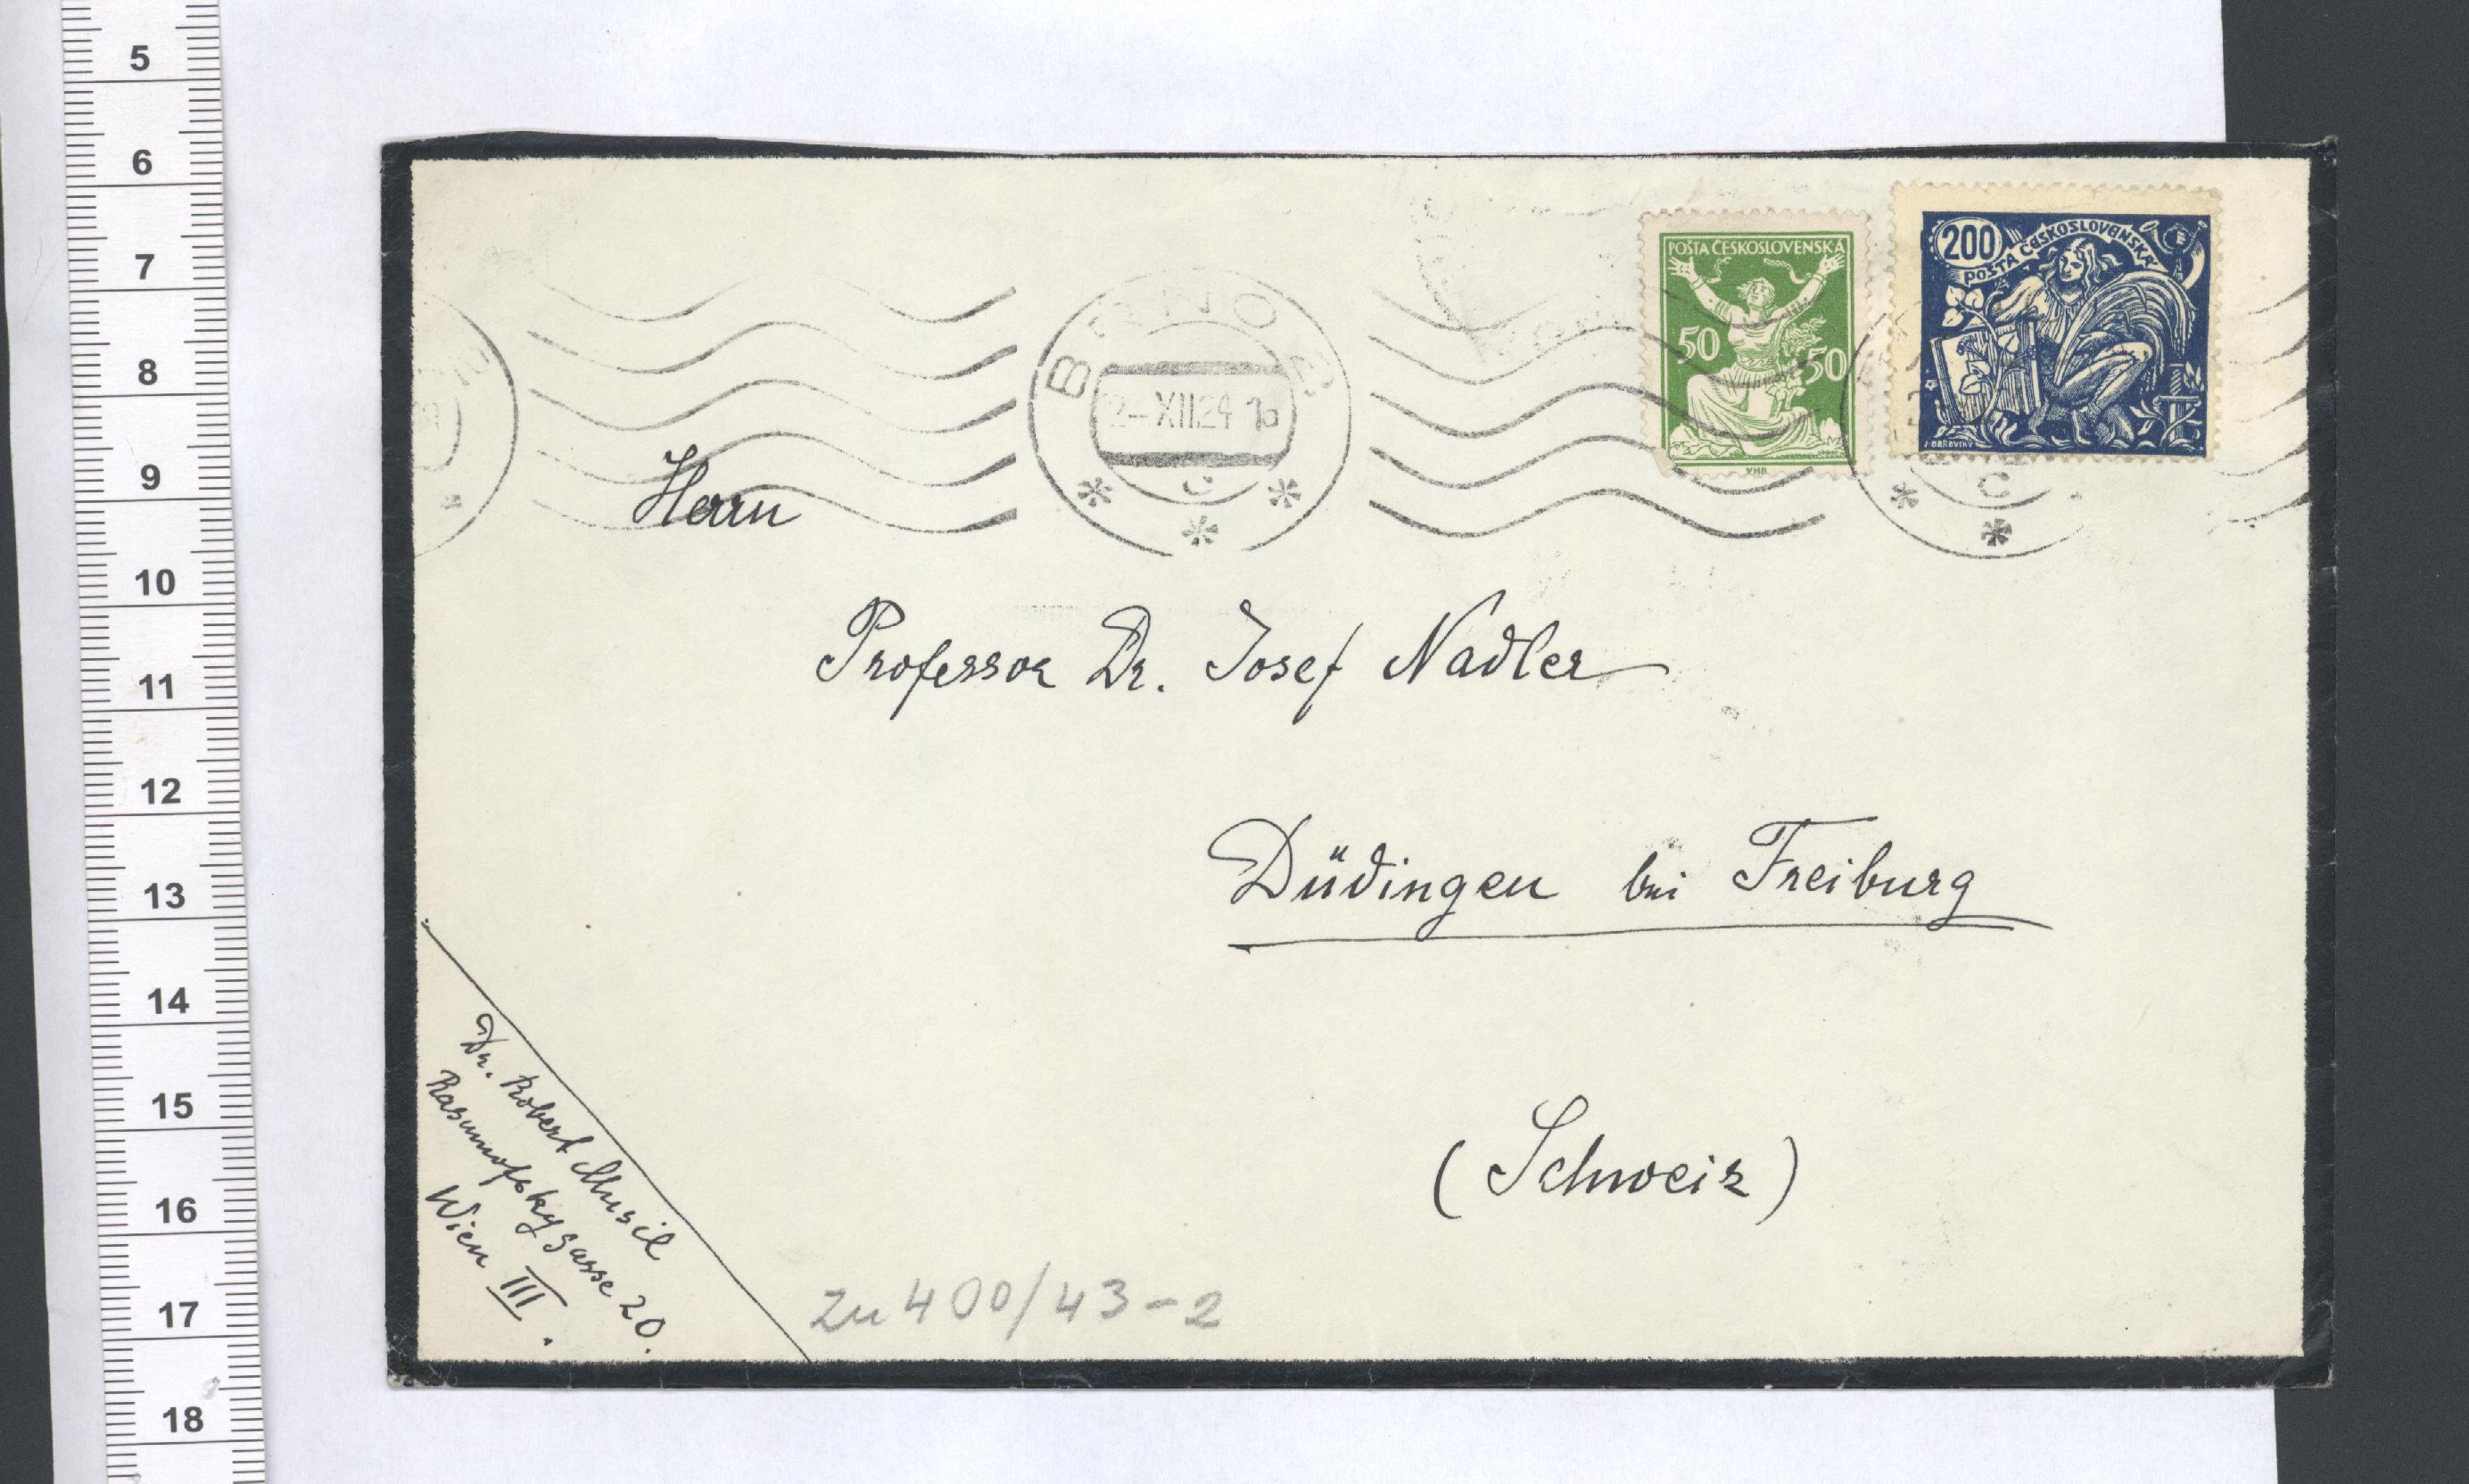 5
6
7
8
9
10
11
12
13
14
15
16
17
18
POŠTA ČESKOSLOVENSKÁ
50 50
200
POŠTA ČESKOSLOVENSKÁ
BRNO
2-XII.24
C
C
Herrn
Professor Dr. Josef Nadler
Düdingen bei Freiburg
(Schweiz)
Dr. Robert Musil
Rasumofskygasse 20.
Wien III.
zu 400/43-2